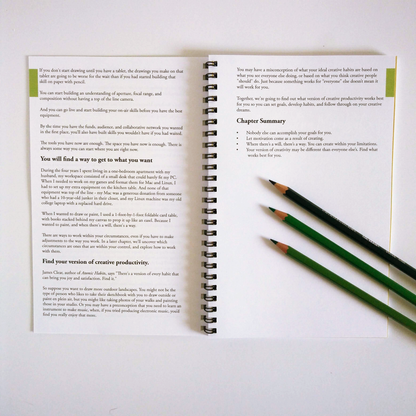 If you don't start drawing until you have a tablet, the drawings you make on that
tablet are going to be worse for the wait than if you had started building that
skill on paper with pencil.
You can start building an understanding of aperture, focal range, and
composition without having a top of the line camera.
And you can go live and start building your on-air skills before you have the best
equipment.
By the time you have the funds, audience, and collaborative network you wanted
in the first place, you'll also have built skills you wouldn't have if you had waited.
The tools you have now are enough. The space you have now is enough. There is
always some way you can start where you are right now.
You will find a way to get to what you want
During the four years I spent living in a one-bedroom apartment with my
husband, my workspace consisted of a small desk that could barely fit my PC.
When I needed to work on my games and format them for Mac and Linux, I
had to set up my extra equipment on the kitchen table. And none of that
equipment was top of the line - my Mac was a generous donation from someone
who had a 10-year-old junker in their closet, and my Linux machine was my old
college laptop with a replaced hard drive.
When I wanted to draw or paint, I used a 1-foot-by-1-foot foldable card table,
with books stacked behind my canvas to prop it up like an easel. Because I
wanted to paint, and when there's a will, there's a way.
There are ways to work within your circumstances, even if you have to make
adjustments to the way you work. In a later chapter, we'll uncover which
circumstances are ones that are within your control, and explore how to work
with them.
Find your version of creative productivity.
James Clear, author of Atomic Habits, says "There's a version of every habit that
can bring you joy and satisfaction. Find it."
So suppose you want to draw more outdoor landscapes. You might not be the
type of person who likes to take their sketchbook with you to draw outside or
paint en plein air, but you might like taking photos of your walks and painting
those in your studio. Or you may have a preconception that you need to learn an
instrument to make music, when, if you tried producing electronic music, you'd
find you really enjoy that more.
You may have a misconception of what your ideal creative habits are based on
what you see everyone else doing, or based on what you think creative people
"should" do. Just because something works for "everyone" else doesn't mean it
will work for you.
Together, we're going to find out what version of creative productivity works best
for you so you can set goals, develop habits, and follow through on your creative
dreams.
Chapter Summary
• Nobody else can accomplish your goals for you.
• Let motivation come as a result of creating.
• Where there's a will, there's a way. You can create within your limitations.
• Your version of creativity may be different than everyone else's. Find what
works best for you.